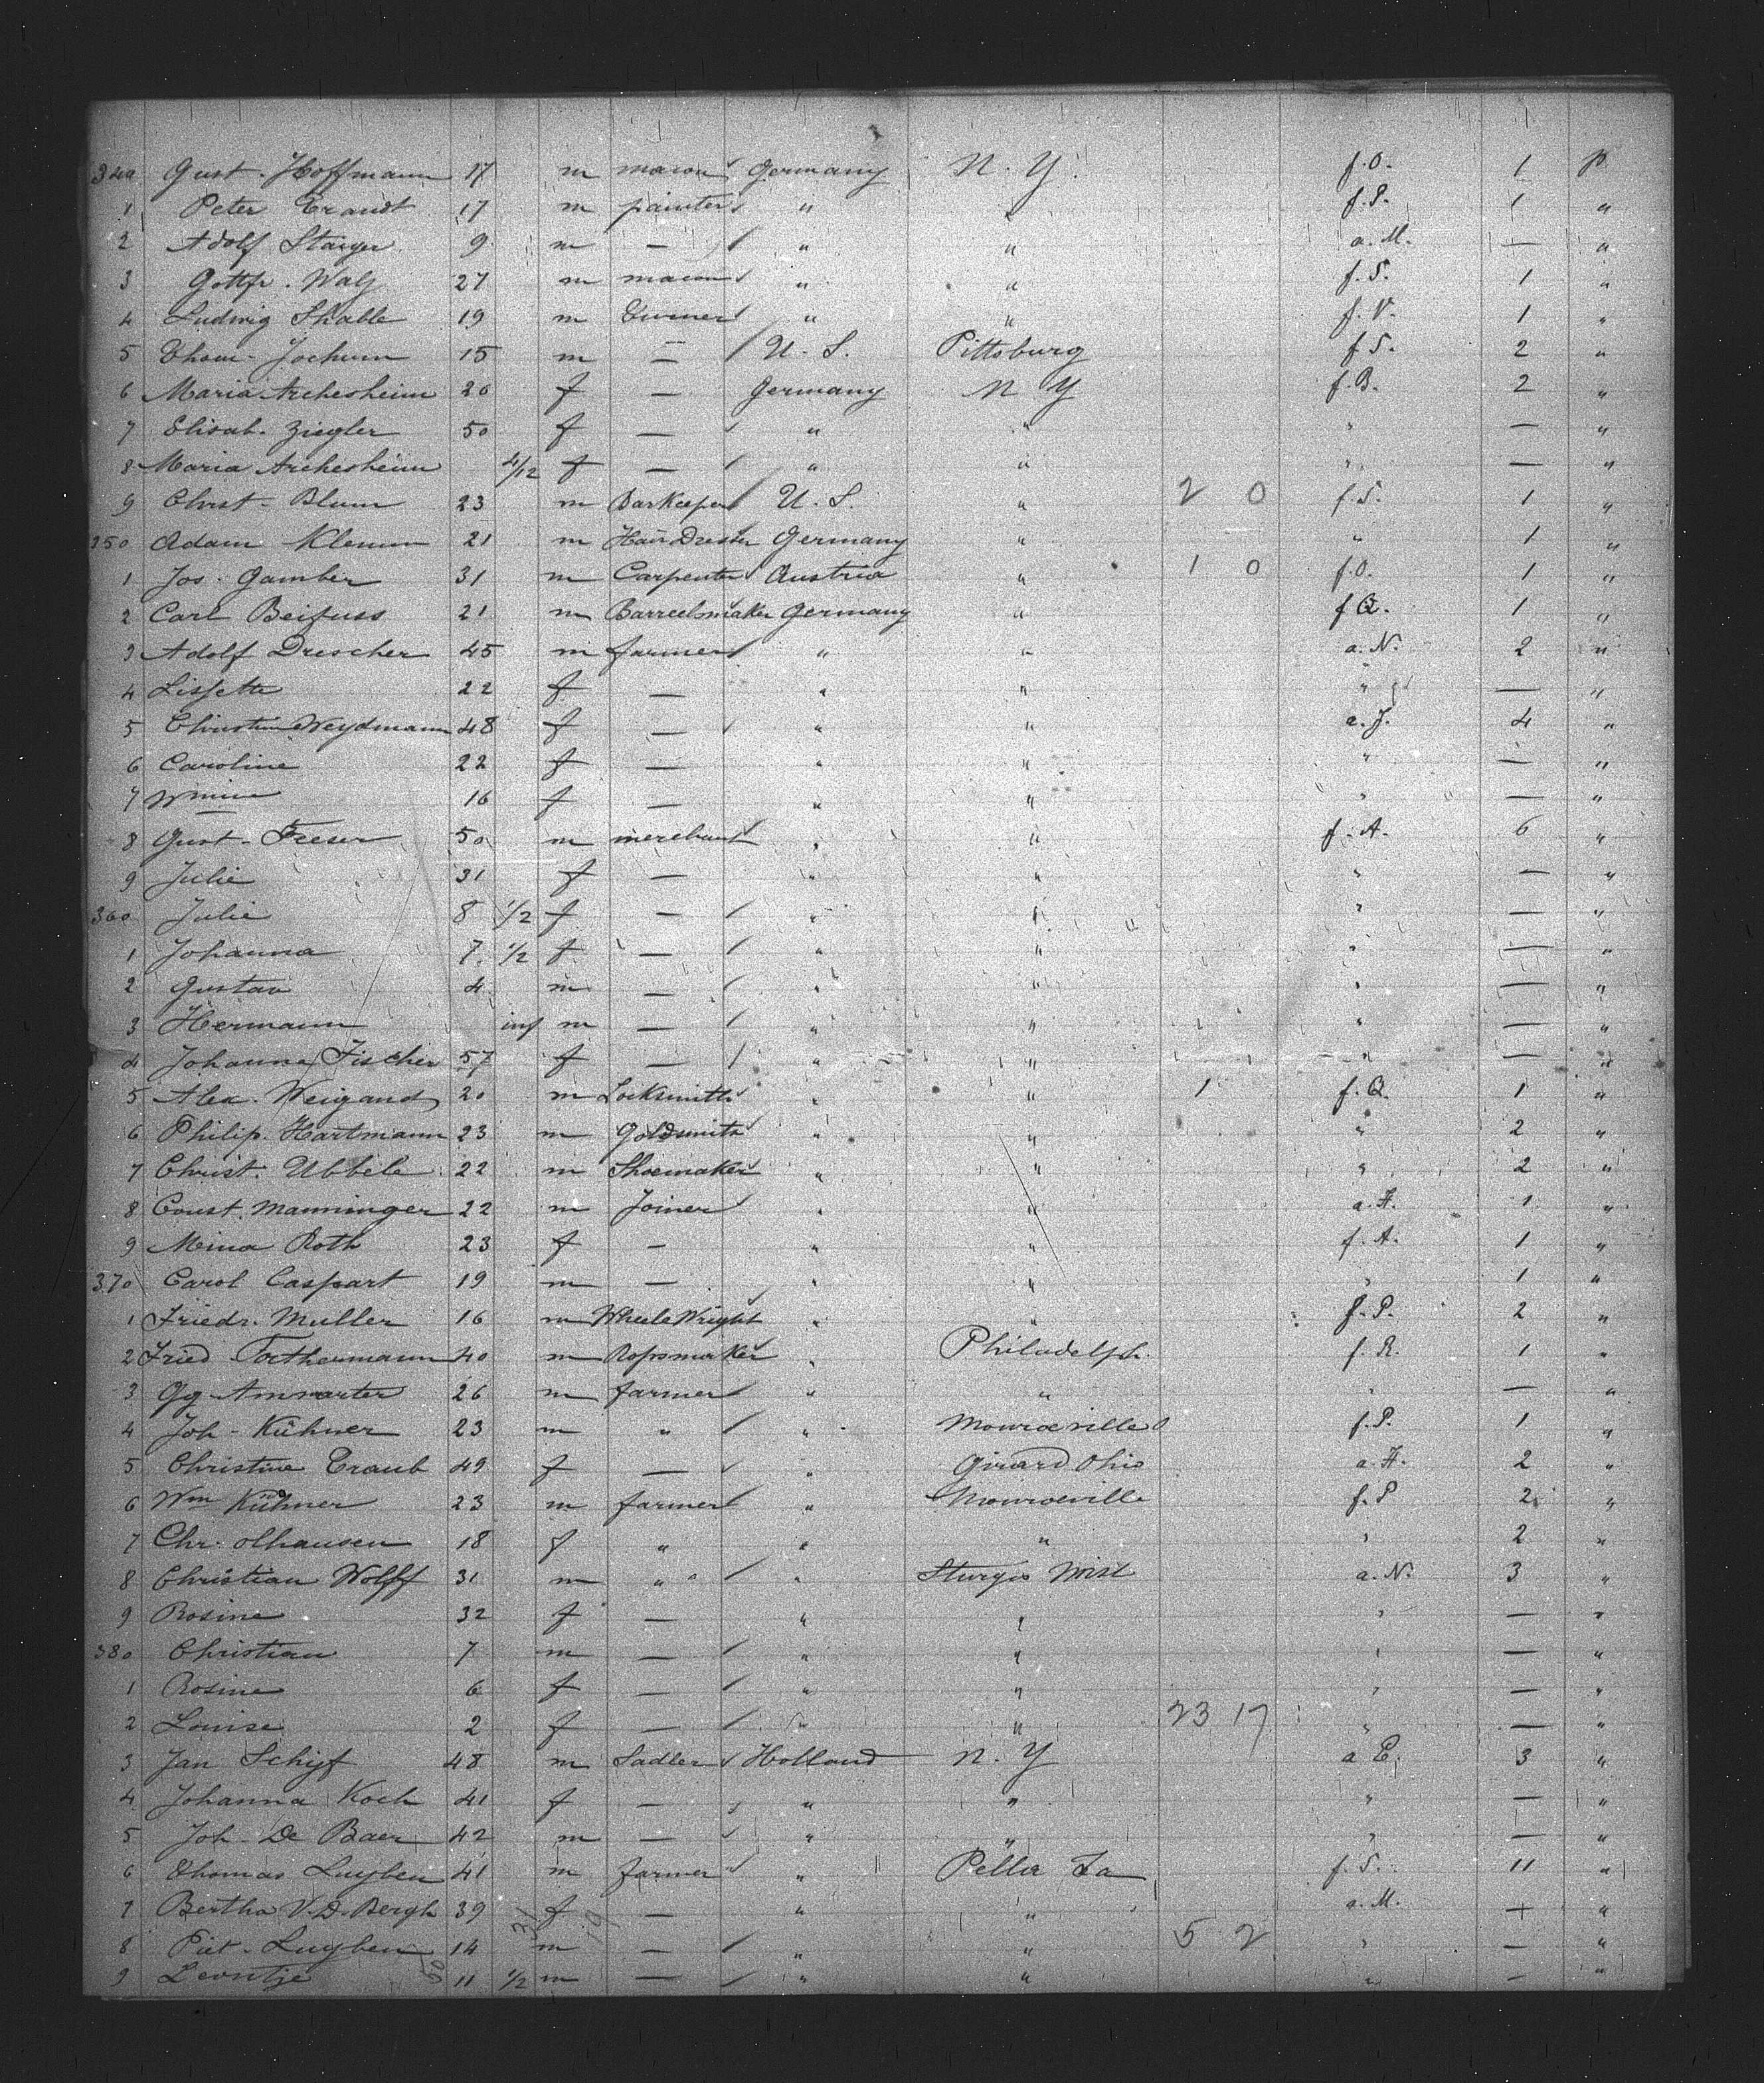 340 Gust. Hoffmann 17 m mason Germany N. Y. f. O. 1 p
1 Peter Brandt 17 m painter " " f. P. 1 "
2 Adolf Staiger 9 m — " " a. M. — "
3 Gottfr. Walz 27 m mason " " f. S. 1 "
4 Ludwig Shable 19 m Turner " " f. V. 1 "
5 Thom. Jochum 15 m — U. S. Pittsburg f. S. 2 "
6 Maria Archesheim 20 f — Germany N Y f. B. 2 "
7 Elisab. Ziegler 50 f — " " " — "
8 Maria Archesheim 4/12 f — " " " — "
9 Christ. Blum 23 m Barkeeper U. S. " 2 0 f. S. 1 "
350 Adam Klemm 21 m Hair Dresser Germany " " 1 "
1 Jos. Gamber 31 m Carpenter Austria " 1 0 f. O. 1 "
2 Carl Beifuss 21 m Barrelmaker Germany " f Q. 1 "
3 Adolf Drescher 45 m farmer " " a. N. 2 "
4 Lissette 22 f — " " " — "
5 Christine Weydmann 48 f — " " a. J. 4 "
6 Caroline 22 f — " " " — "
7 Wmine 16 f — " " " — "
8 Gust. Freser 50 m merchant " " f. A. 6 "
9 Julie 31 f — " " " — "
360 Julie 8 1/2 f — " " " — "
1 Johanna 7 1/2 f — " " " — "
2 Gustav 4 m — " " " — "
3 Hermann inf m — " " " — "
4 Johanna Fischer 57 f — " " " — "
5 Alex. Weigand 20 m Locksmith " " 1 f. Q. 1 "
6 Philip. Hartmann 23 m Goldsmith " " " 2 "
7 Christ. Ubbele 22 m Shoemaker " " " 2 "
8 Const. Manninger 22 m Joiner " " a. H. 1 "
9 Mina Roth 23 f — " " f. A. 1 "
370 Carol Caspart 19 m — " " " 1 "
1 Friedr. Muller 16 m Wheele Wright " " f. P. 2 "
2 Fried Forthermann 40 m Ropsmaker " Philadelph. f. R. 1 "
3 Gg Ammarter 26 m farmer " " " — "
4 Joh. Kühner 23 m " " Monroeville f. P. 1 "
5 Christine Traub 49 f — " Girard Ohio a. H. 2 "
6 Wm Kühner 23 m farmer " Monroeville f. P 2 "
7 Chr. Olhausen 18 f " " " " 2 "
8 Christian Wolff 31 m " " Sturgis a. N. 3 "
9 Rosine 32 f — " " " — "
380 Christian 7 m — " " " — "
1 Rosine 6 f — " " " — "
2 Louise 2 f — " " 23 17 " — "
3 Jan Schijf 48 m Sadler Holland N. Y a E. 3 "
4 Johanna Koch 41 f — " " " — "
5 Joh. De Baer 42 m — " " " — "
6 Thomas Luyben 41 m farmer " Pella Ia f. S. 11 "
7 Bertha V. D. Bergh 39 f — " " a. M. — "
8 Piet. Luyben 14 m — " " 5 2 " — "
9 Leontje 11 1/2 m — " " " — "